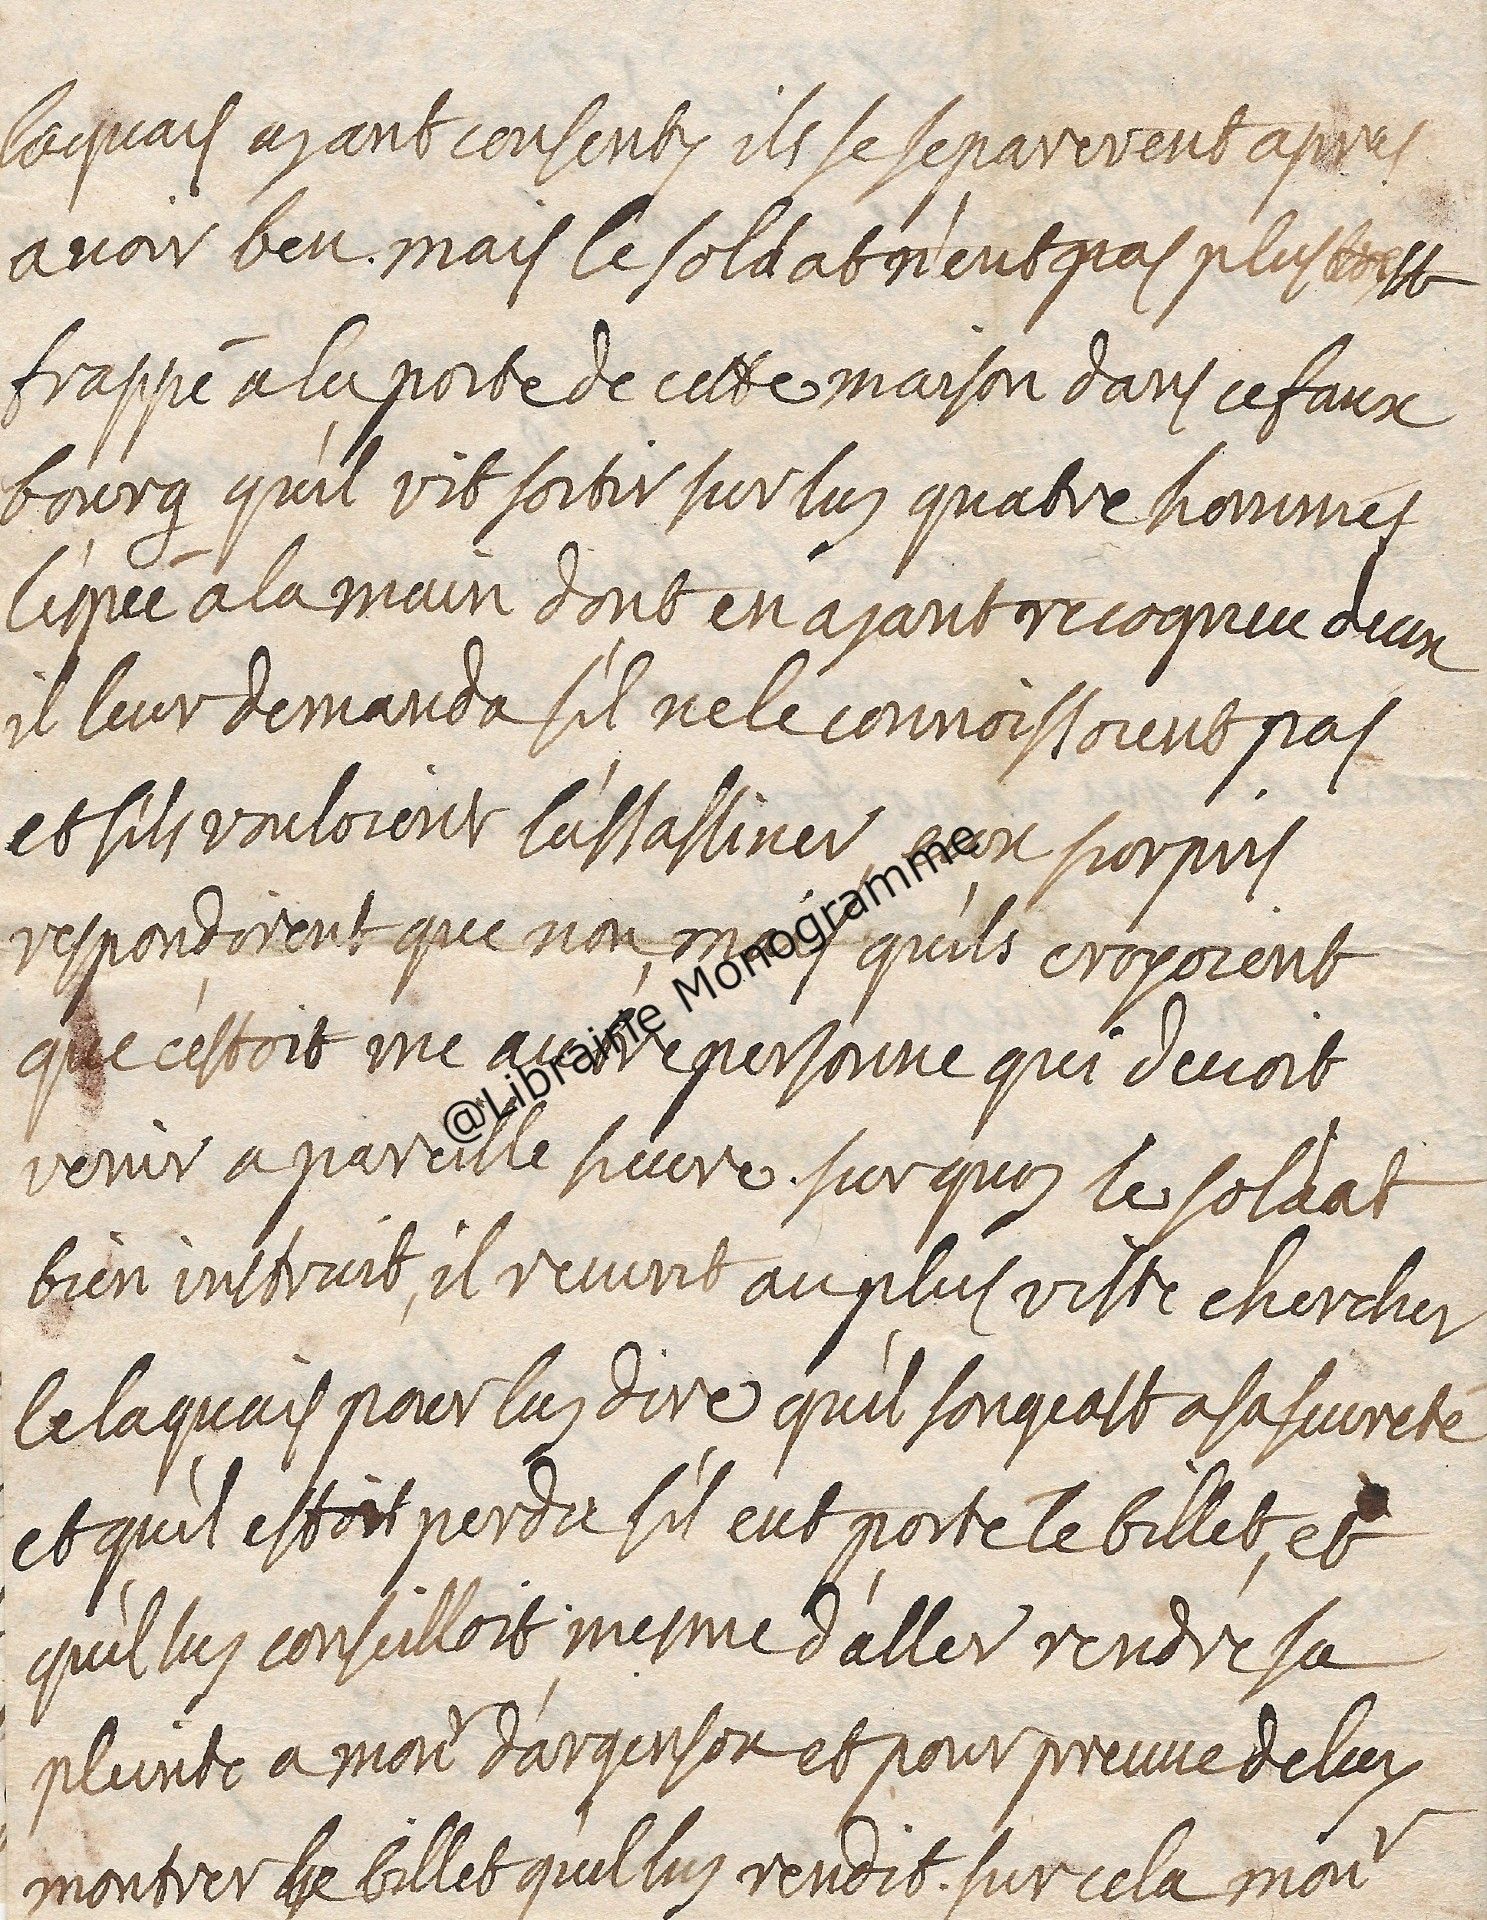 laquais ayant consenty ils se separerent apres
avoir beu. mais le soldat n'eut pas plustost
frappé a la porte de cette maison dans ce faux
bourg qu'il vit sortir sur luy quatre hommes
l'épée a la main dont en ayant recogneu deux
il leur demanda s'il ne le connoissoient pas
et s'ils vouloient l'assassiner, eux surpris
respondirent que non, mais qu'ils croyoient
que c'estoit une autre personne qui devoit
venir a pareille heure. sur quoy le soldat
bien instruit, il revint au plus viste chercher
le laquais pour luy dire qu'il songeast a sa seureté
et qu'il estoit perdu s'il eut porté le billet, et
qu'il luy conseilloit mesme d'aller rendre sa
plainte a monr d'argenson et pour preuve de luy
montrer le billet qu'il luy rendit. sur cela monr
@Librairie Monogramme